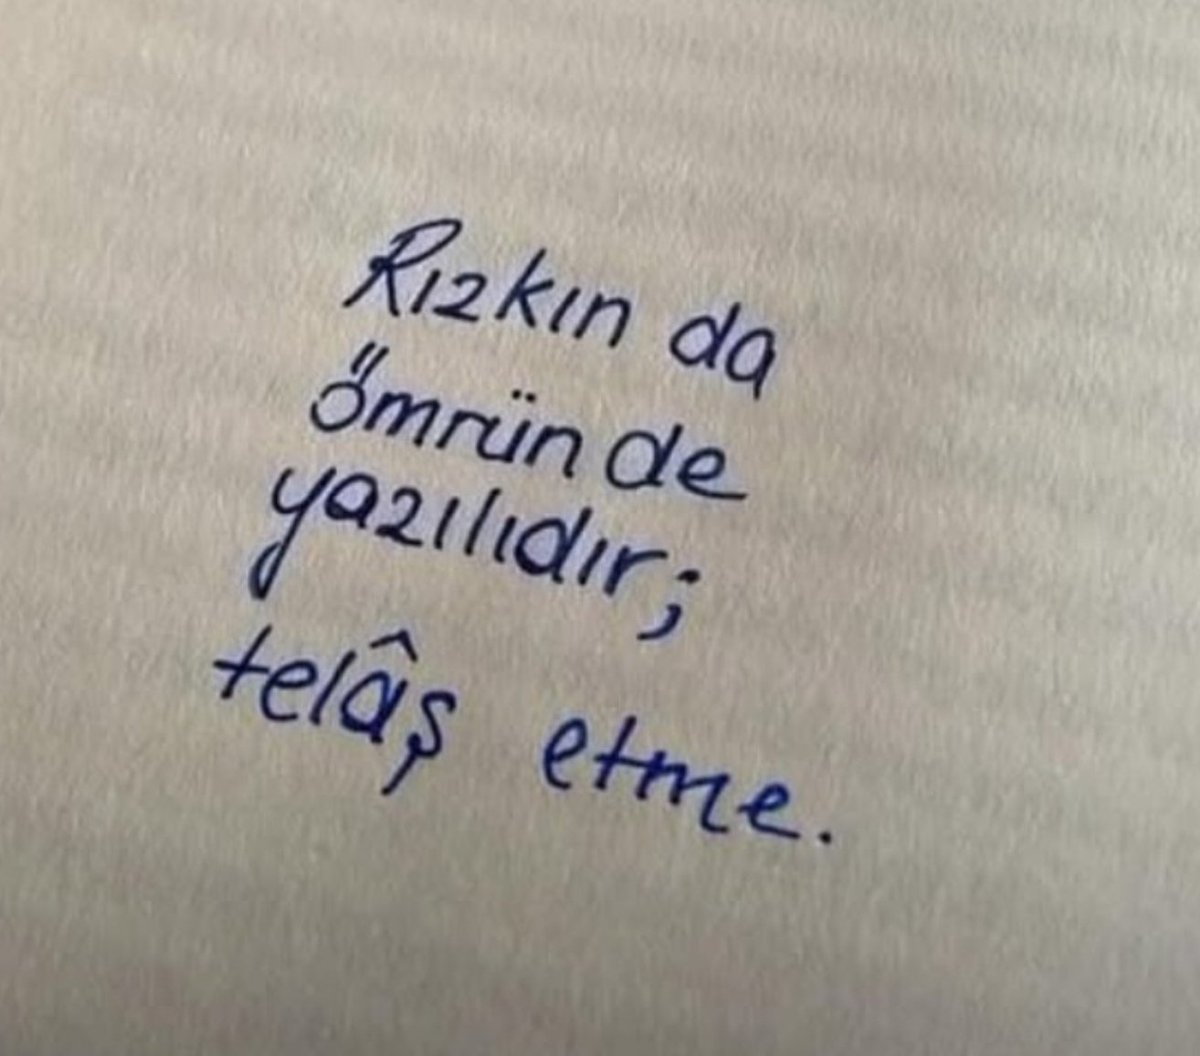 Rızkın da
ömrün de
yazılıdır;
telâş etme.